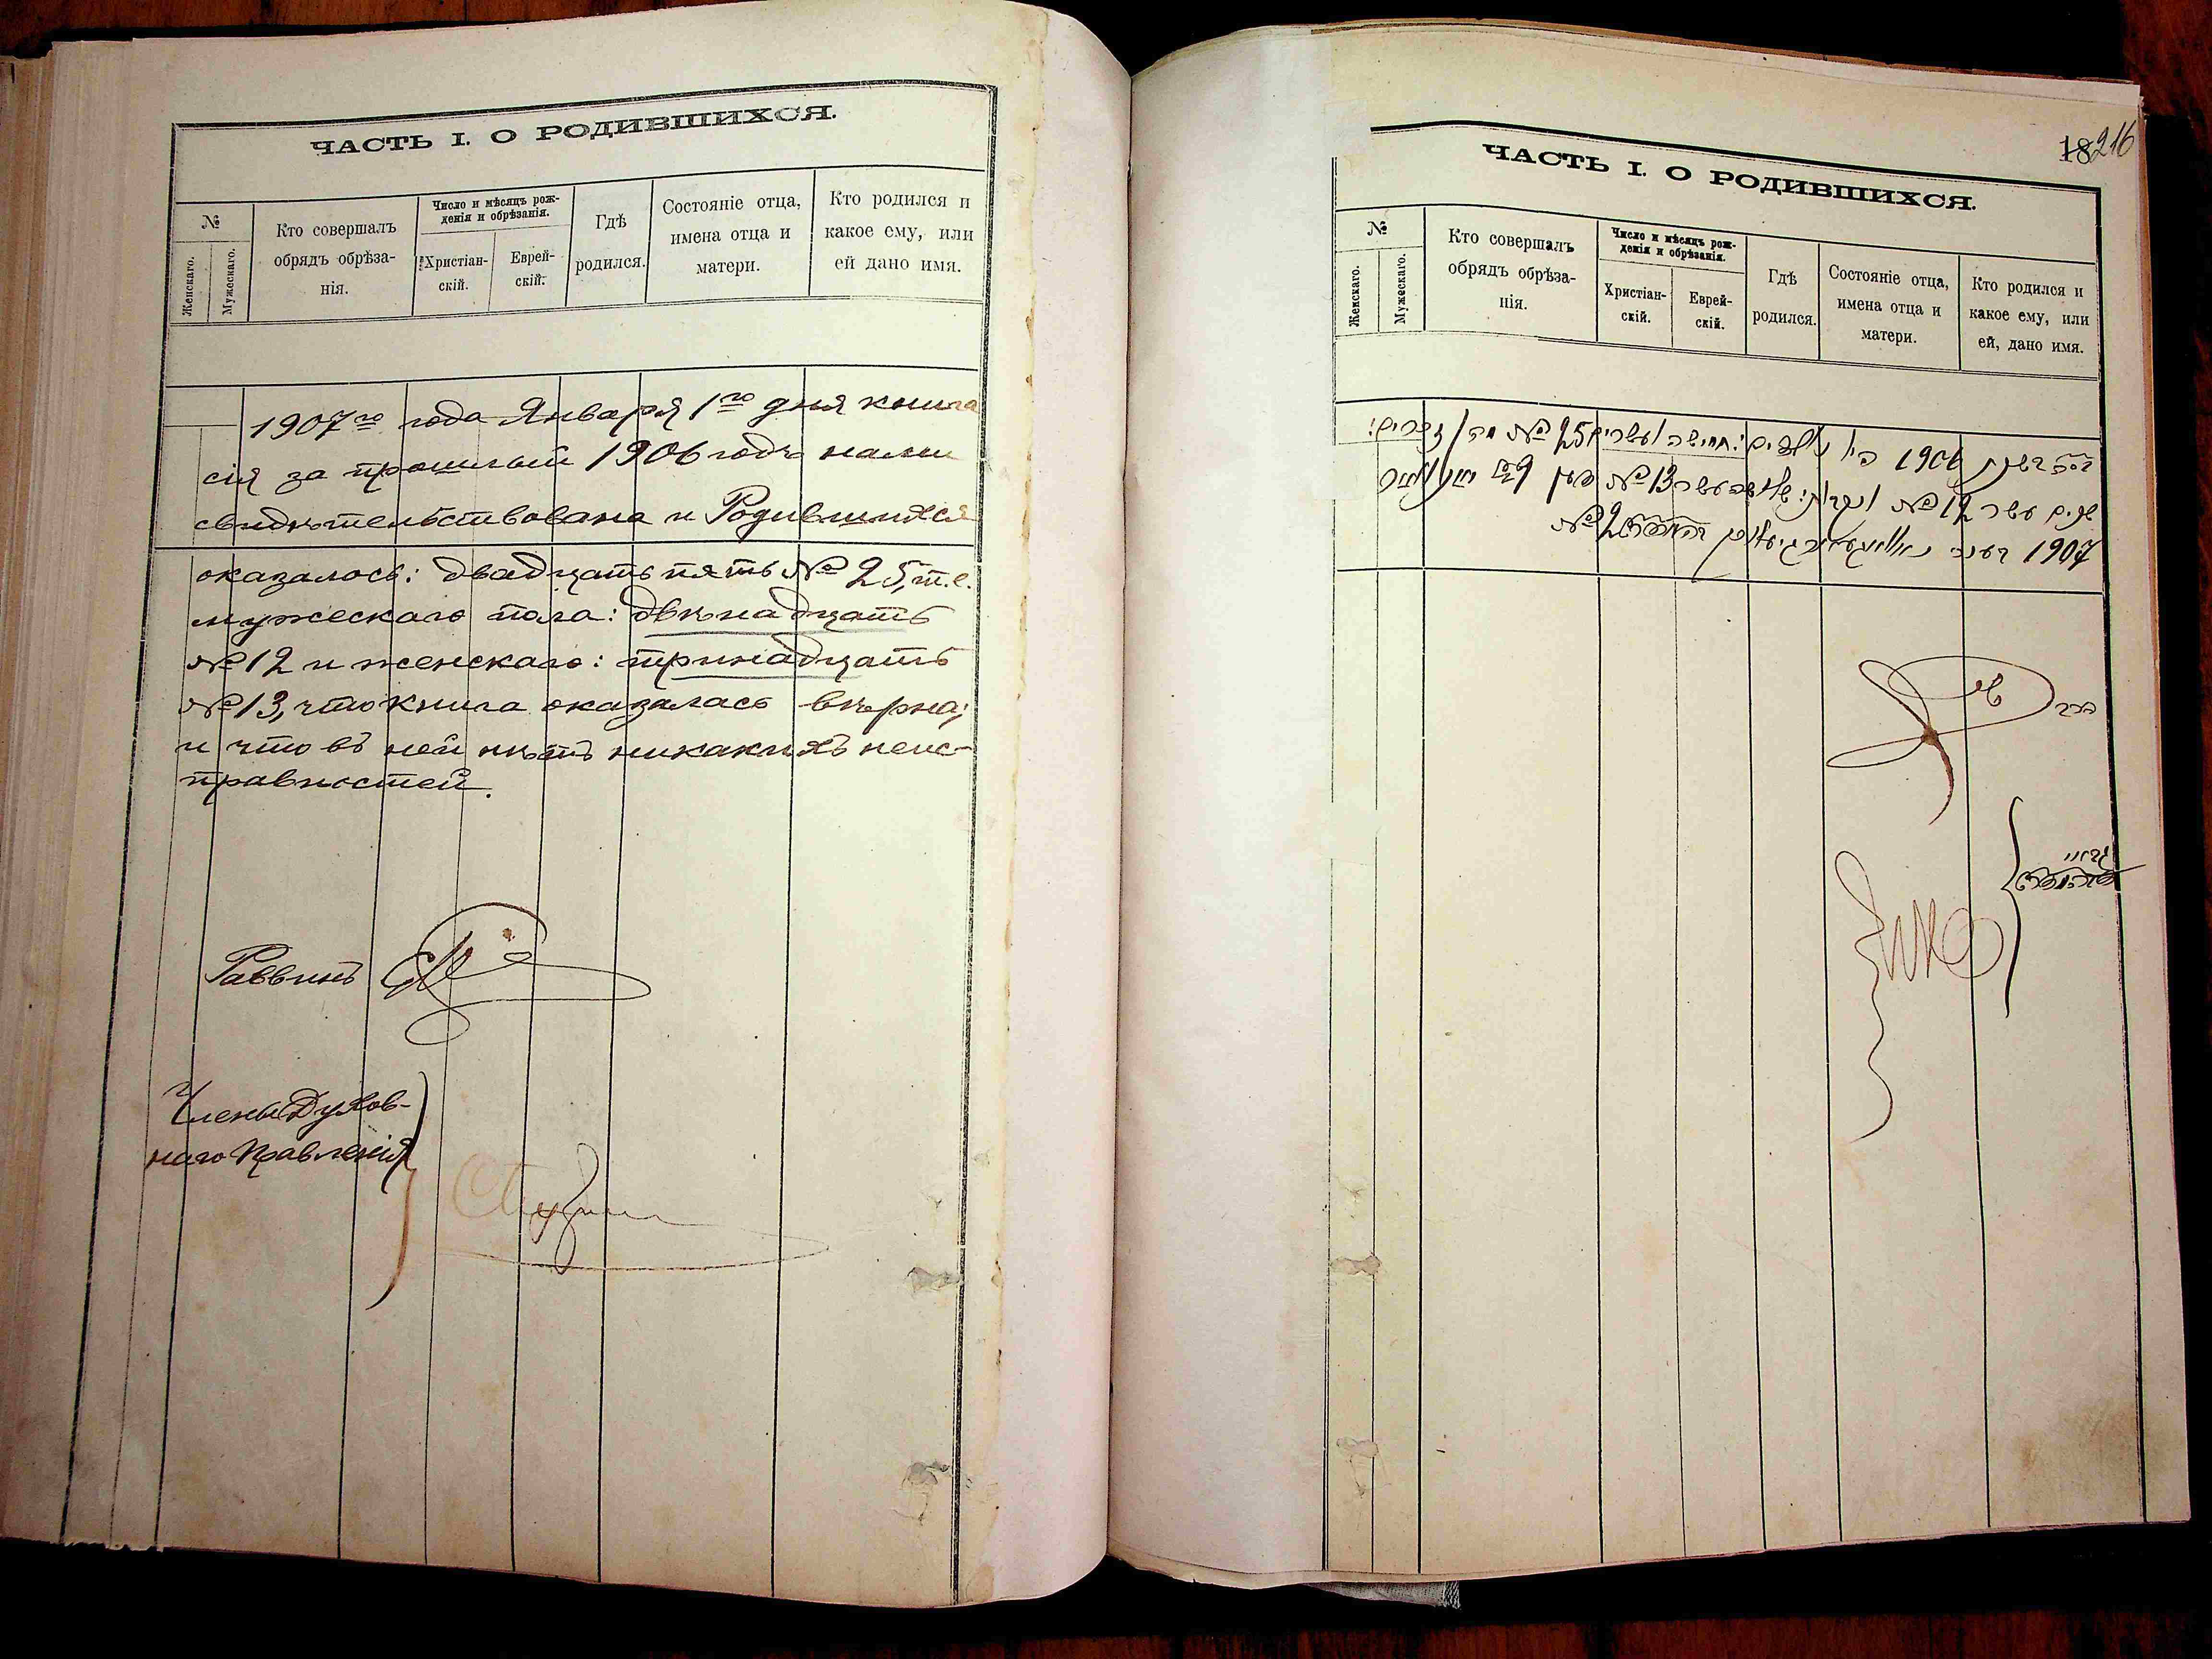 ЧАСТЬ I. О РОДИВШИХСЯ.
№
Женскаго.
Мужескаго.
Кто совершалъ
обрядъ обрѣза-
нія.
Число и мѣсяцъ рож-
денія и обрѣзанія.
Христіан-
скій.
Еврей-
скій.
Гдѣ
родился.
Состояніе отца,
имена отца и
матери.
Кто родился и
какое ему, или
ей дано имя.
1907го года Января 1го дня книга
сія за прошлый 1906 годъ нами
свидѣтельствована и Родившихся
оказалось: двадцать пять № 25, т.е.
мужескаго пола: двѣнадцать
№ 12 и женскаго: тринадцать
№ 13, что книга оказалась вѣрна;
и что въ ней нѣтъ никакихъ неис-
правностей.
Раввинъ
Члены Духов-
наго Правленія
18 216
ЧАСТЬ I. О РОДИВШИХСЯ.
№
Женскаго.
Мужескаго.
Кто совершалъ
обрядъ обрѣза-
нія.
Число и мѣсяцъ рож-
денія и обрѣзанія.
Христіан-
скій.
Еврей-
скій.
Гдѣ
родился.
Состояніе отца,
имена отца и
матери.
Кто родился и
какое ему, или
ей, дано имя.
1906 חמשה ועשרים № 25
שנים עשר № 12 № 13
1907 № 2